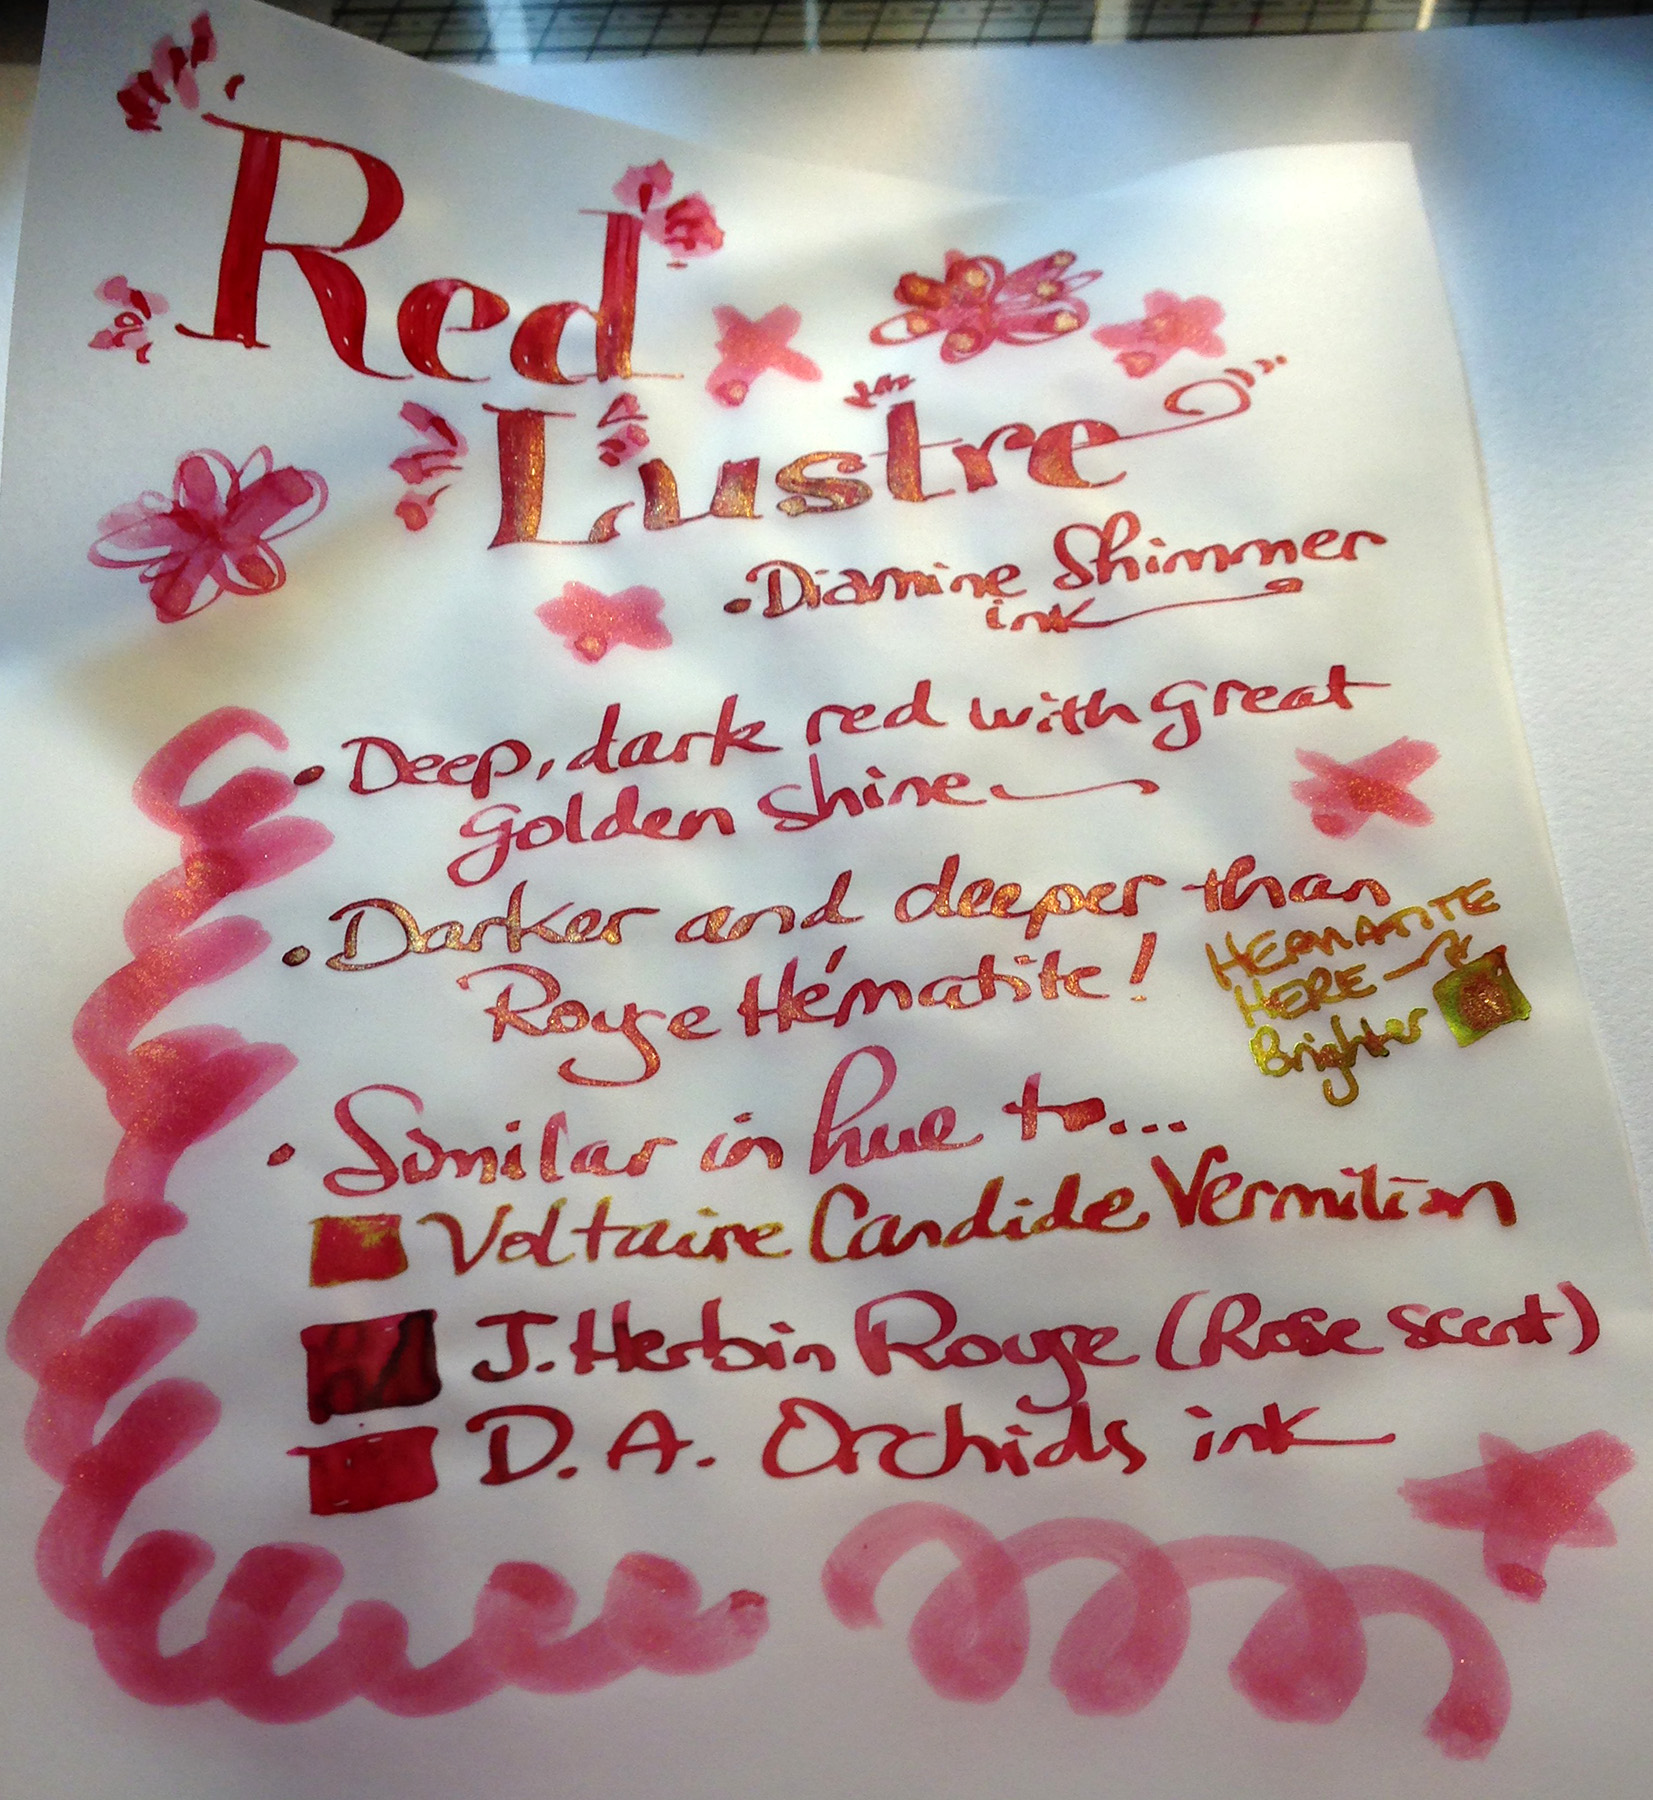 Red
Lustre
• Diamine Shimmer
ink
• Deep, dark red with great
golden shine
• Darker and deeper than
Rouge Hématite!
HERMATITE
HERE →
Brighter
• Similar in hue to...
Voltaire Candide Vermilion
J. Herbin Rouge (Rose scent)
D. A. Orchids ink